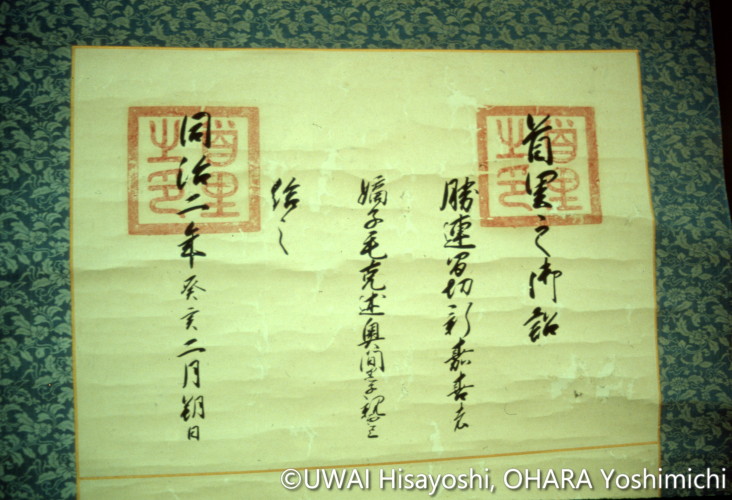 首里之印
首里之御詔
勝連間切新嘉喜
嫡子毛克述奥間親雲上
給之
首里之印
同治二年癸亥二月朔日
©UWAI Hisayoshi, OHARA Yoshimichi